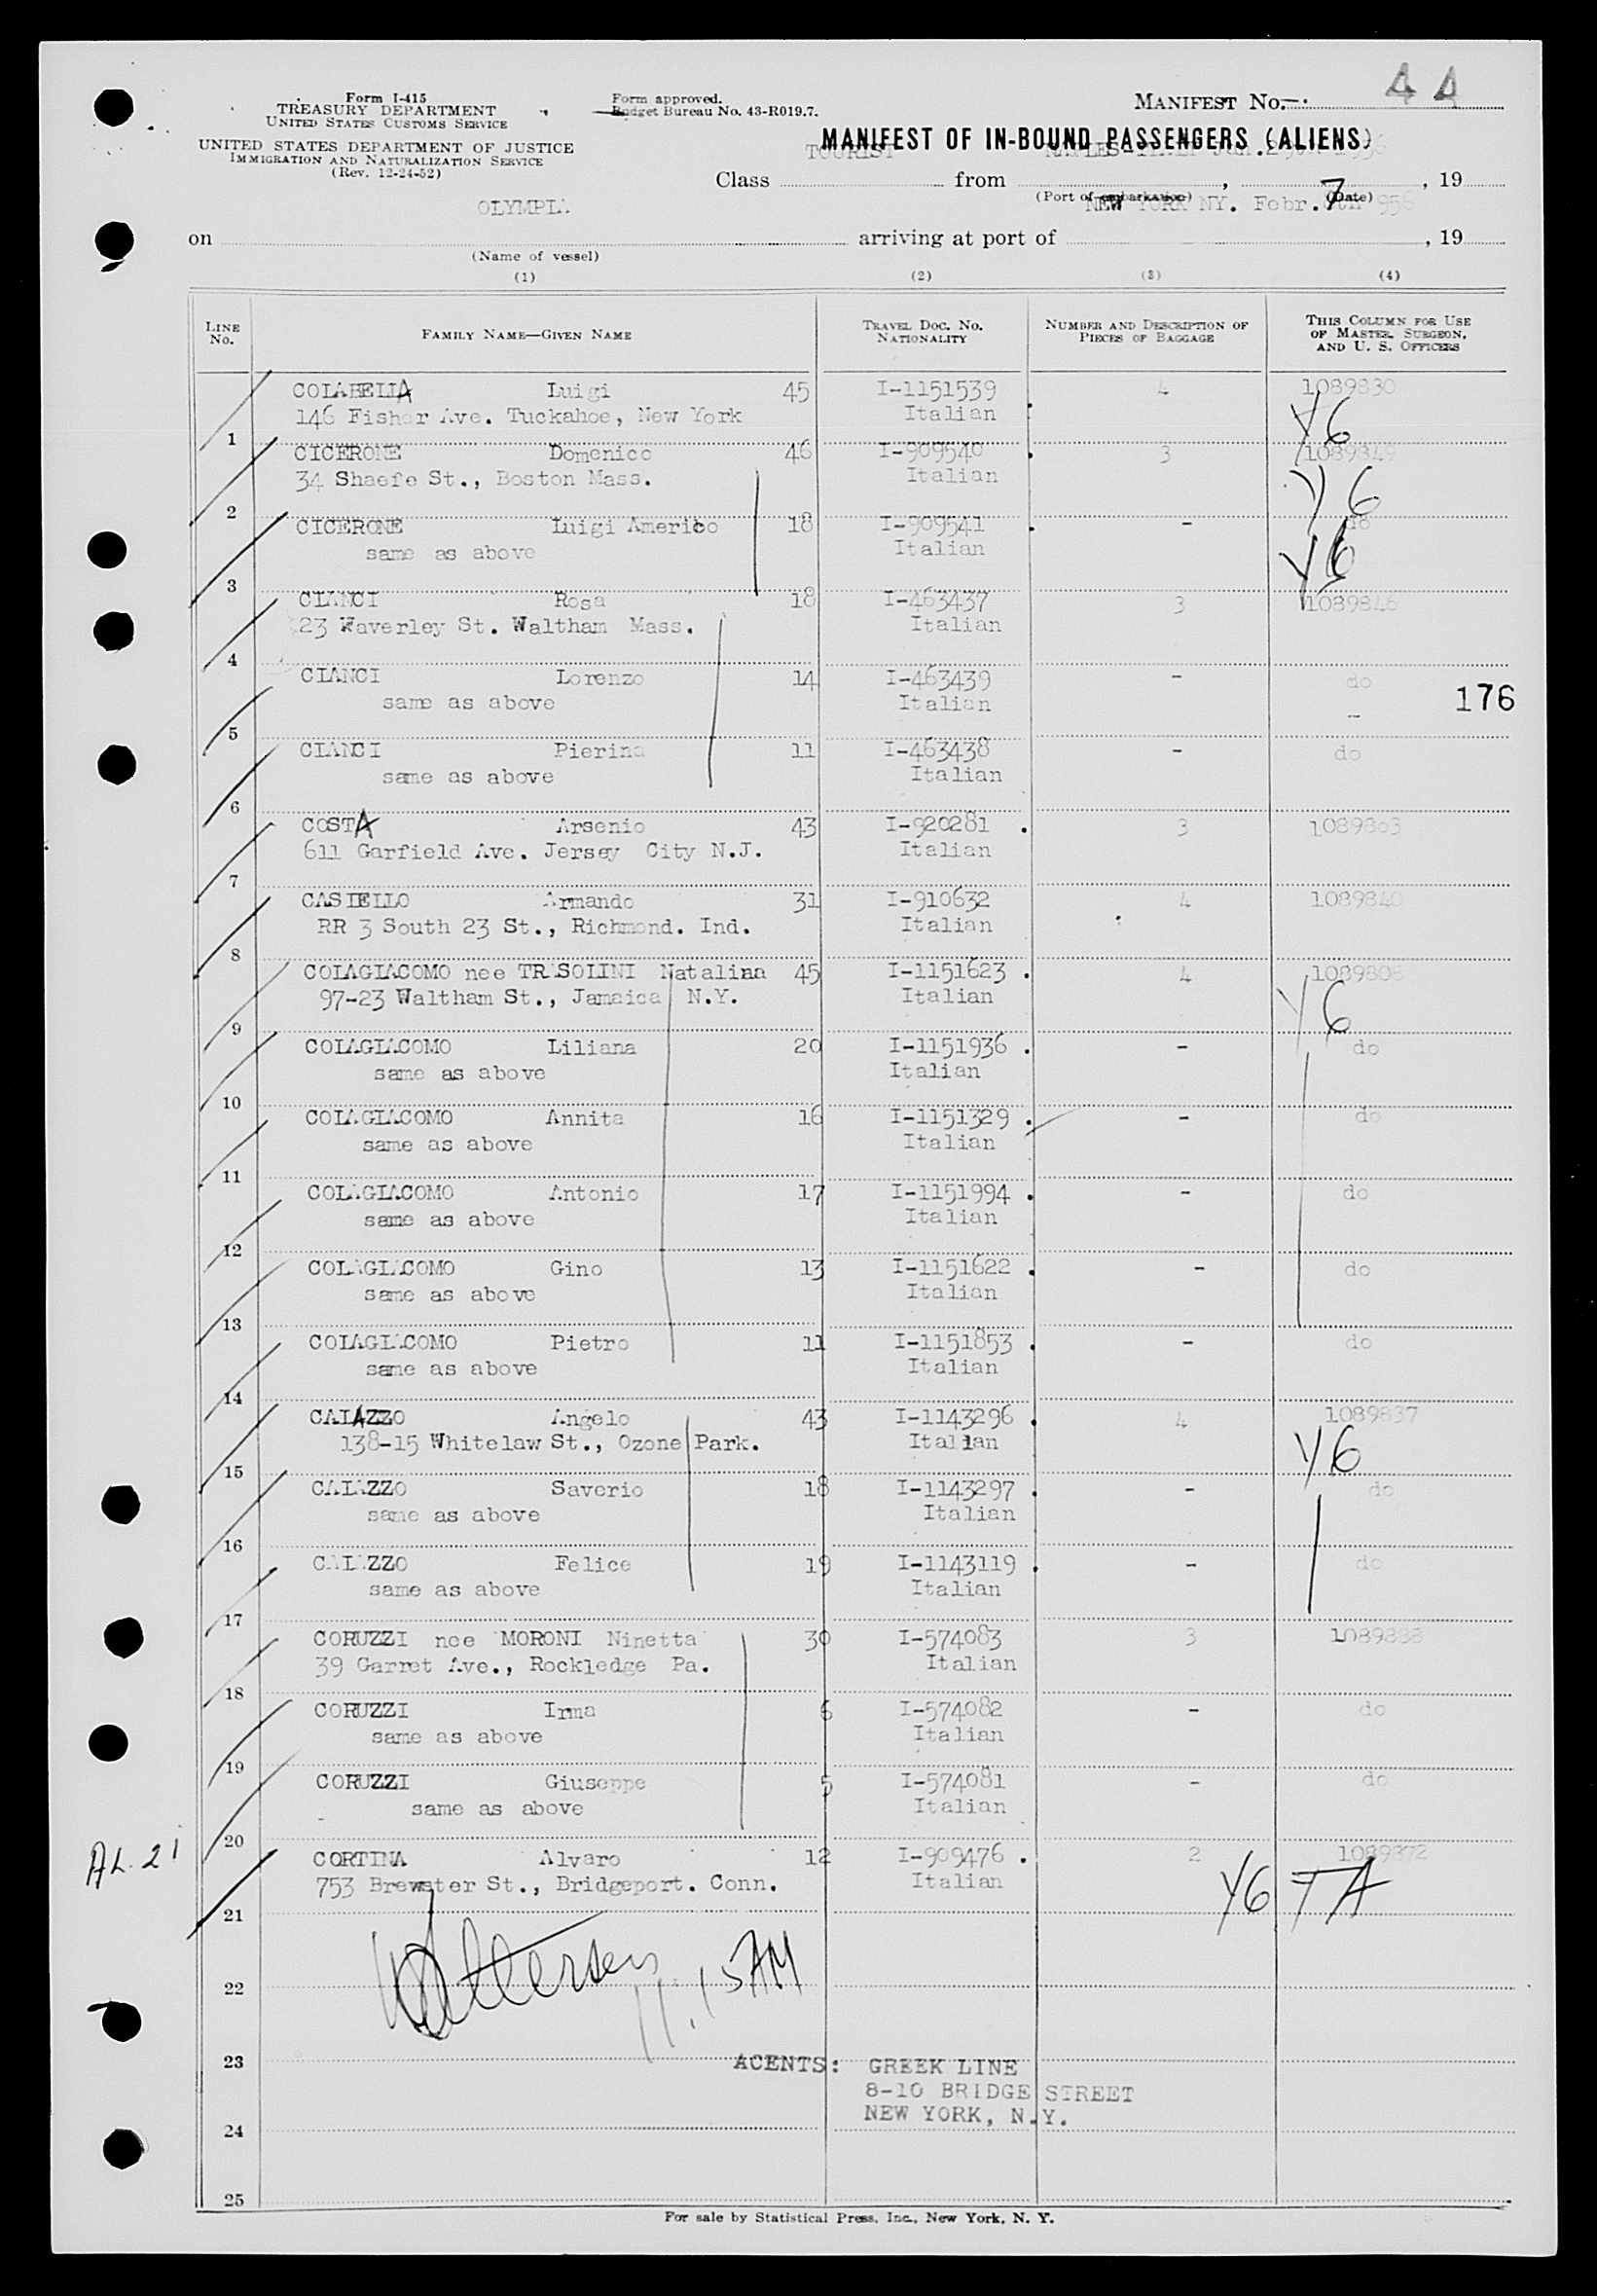 Form I-415
TREASURY DEPARTMENT
UNITED STATES CUSTOMS SERVICE
UNITED STATES DEPARTMENT OF JUSTICE
IMMIGRATION AND NATURALIZATION SERVICE
(Rev. 12-24-52)
Form approved.
Budget Bureau No. 43-R019.7.
MANIFEST NO. 44
MANIFEST OF IN-BOUND PASSENGERS (ALIENS)
TOURIST
Class from , , 19
(Port of embarkation) (Date)
OLYMPIA NEW YORK NY. Febr. 7
on arriving at port of , 19
(Name of vessel)
(1) (2) (3) (4)
LINE NO. FAMILY NAME—GIVEN NAME TRAVEL DOC. NO. NATIONALITY NUMBER AND DESCRIPTION OF PIECES OF BAGGAGE THIS COLUMN FOR USE OF MASTER, SURGEON, AND U. S. OFFICERS
COLABELLA Luigi 45 I-1151539 4 1089830
146 Fisher Ave. Tuckahoe, New York Italian Y6
1
CICERONE Domenico 46 I-909540 3 1089849
34 Shaefe St., Boston Mass. Italian Y6
2
CICERONE Luigi Americo 18 I-909541 - do
same as above Italian Y6
3
CIANCI Rosa 18 I-463437 3 1089846
23 Waverley St. Waltham Mass. Italian
4
CIANCI Lorenzo 14 I-463439 - do
same as above Italian 176
5
CIANCI Pierina 11 I-463438 - do
same as above Italian
6
COSTA Arsenio 43 I-920281 3
611 Garfield Ave. Jersey City N.J. Italian
7
CASTELLO Armando 31 I-910632 4 1089840
RR 3 South 23 St., Richmond. Ind. Italian
8
COLAGIACOMO nee TRASOLINI Natalina 45 I-1151623 4
97-23 Waltham St., Jamaica N.Y. Italian Y6
9
COLAGIACOMO Liliana 20 I-1151936 - do
same as above Italian
10
COLAGIACOMO Annita 16 I-1151329 - do
same as above Italian
11
COLAGIACOMO Antonio 17 I-1151994 - do
same as above Italian
12
COLAGIACOMO Gino 13 I-1151622 - do
same as above Italian
13
COLAGIACOMO Pietro 11 I-1151853 - do
same as above Italian
14
CAIAZZO Angelo 43 I-1143296 4 1089837
138-15 Whitelaw St., Ozone Park. Italian Y6
15
CAIAZZO Saverio 18 I-1143297 - do
same as above Italian
16
CAIAZZO Felice 19 I-1143119 - do
same as above Italian
17
CORUZZI nee MORONI Ninetta 30 I-574083 3
39 Garret Ave., Rockledge Pa. Italian
18
CORUZZI Irma 6 I-574082 - do
same as above Italian
19
CORUZZI Giuseppe 5 I-574081 - do
same as above Italian
20
AL. 21
CORTINA Alvaro 12 I-909476 2 1089872
753 Brewster St., Bridgeport. Conn. Italian Y6 TA
21
11.15AM
22
23
AGENTS: GREEK LINE
8-10 BRIDGE STREET
NEW YORK, N.Y.
24
25
For sale by Statistical Press, Inc., New York, N. Y.